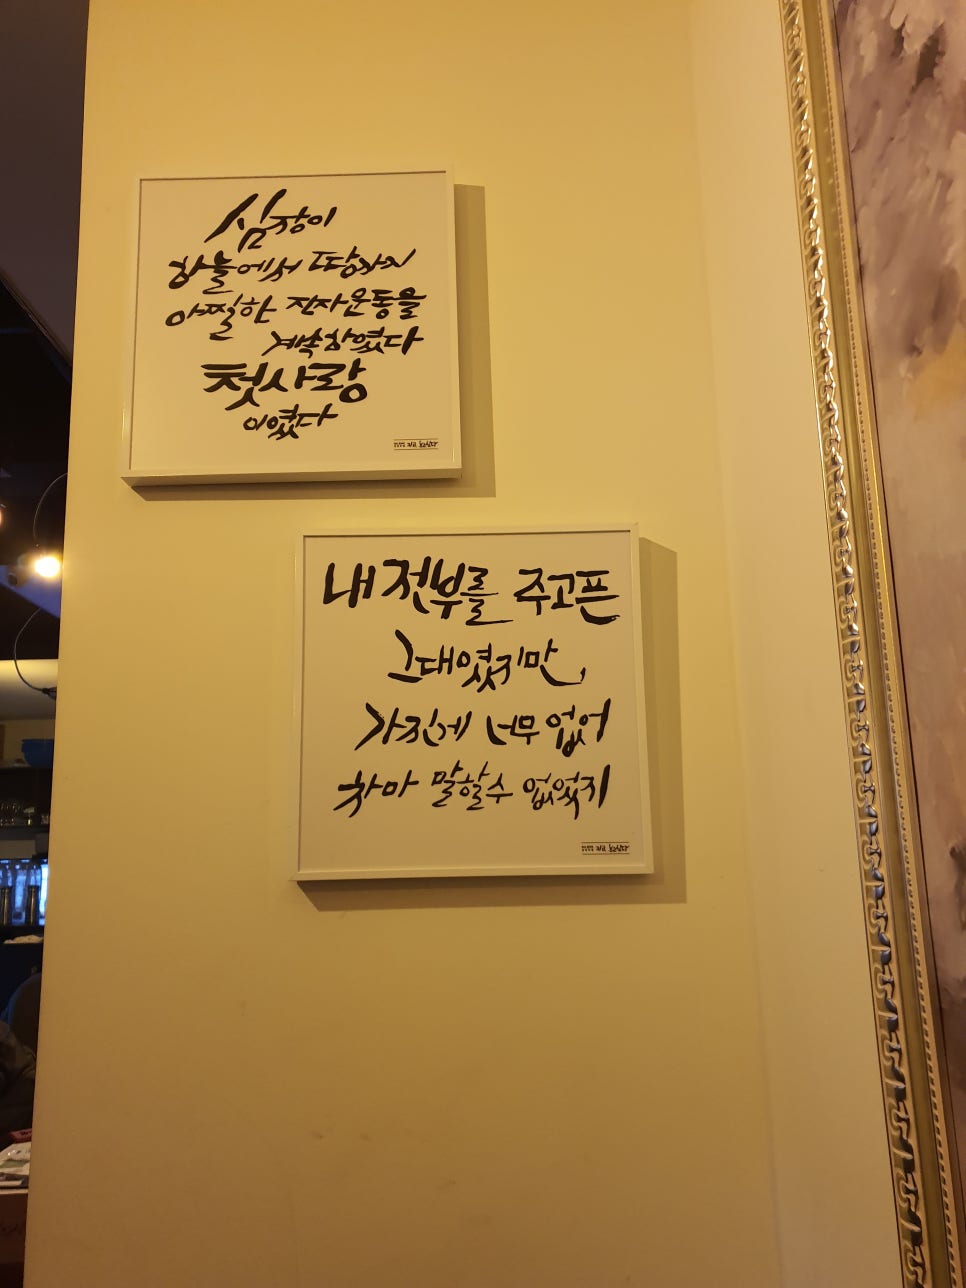 심장이
하늘에서 땅까지
아찔한 진자운동을
계속하였다
첫사랑
이였다
내 전부를 주고픈
그대였지만,
가진게 너무 없어
차마 말할수 없었지